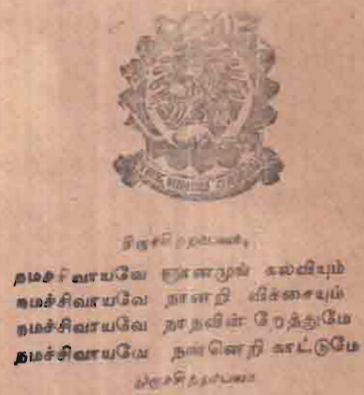 திருச்சிற்றம்பலம்
நமச்சிவாயவே ஞானமுங் கல்வியும்
நமச்சிவாயவே நானறி விச்சையும்
நமச்சிவாயவே நாநவின் றேத்துமே
நமச்சிவாயவே நன்னெறி காட்டுமே
திருச்சிற்றம்பலம்